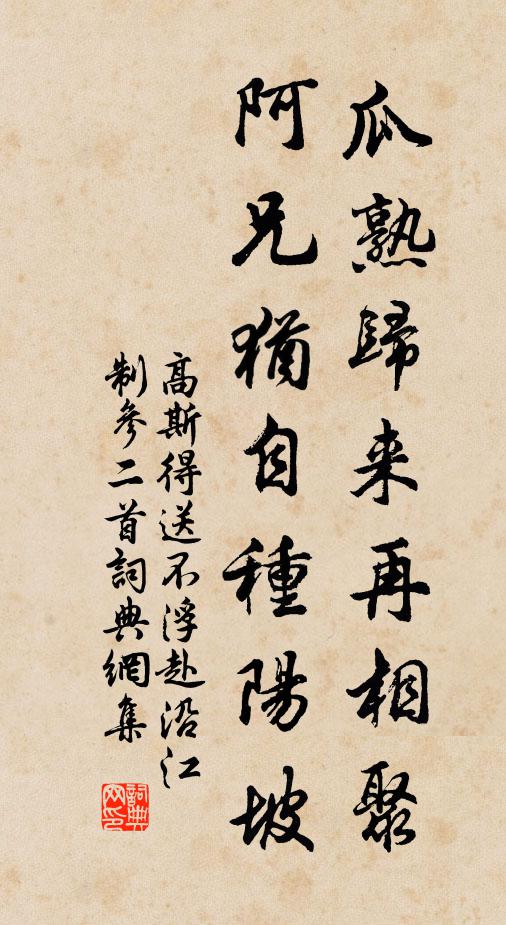 瓜熟歸来再相聚
阿兄猶自種陽坡
高斯得送不浮赴沿江
制參二首詞典網集
詞典網印